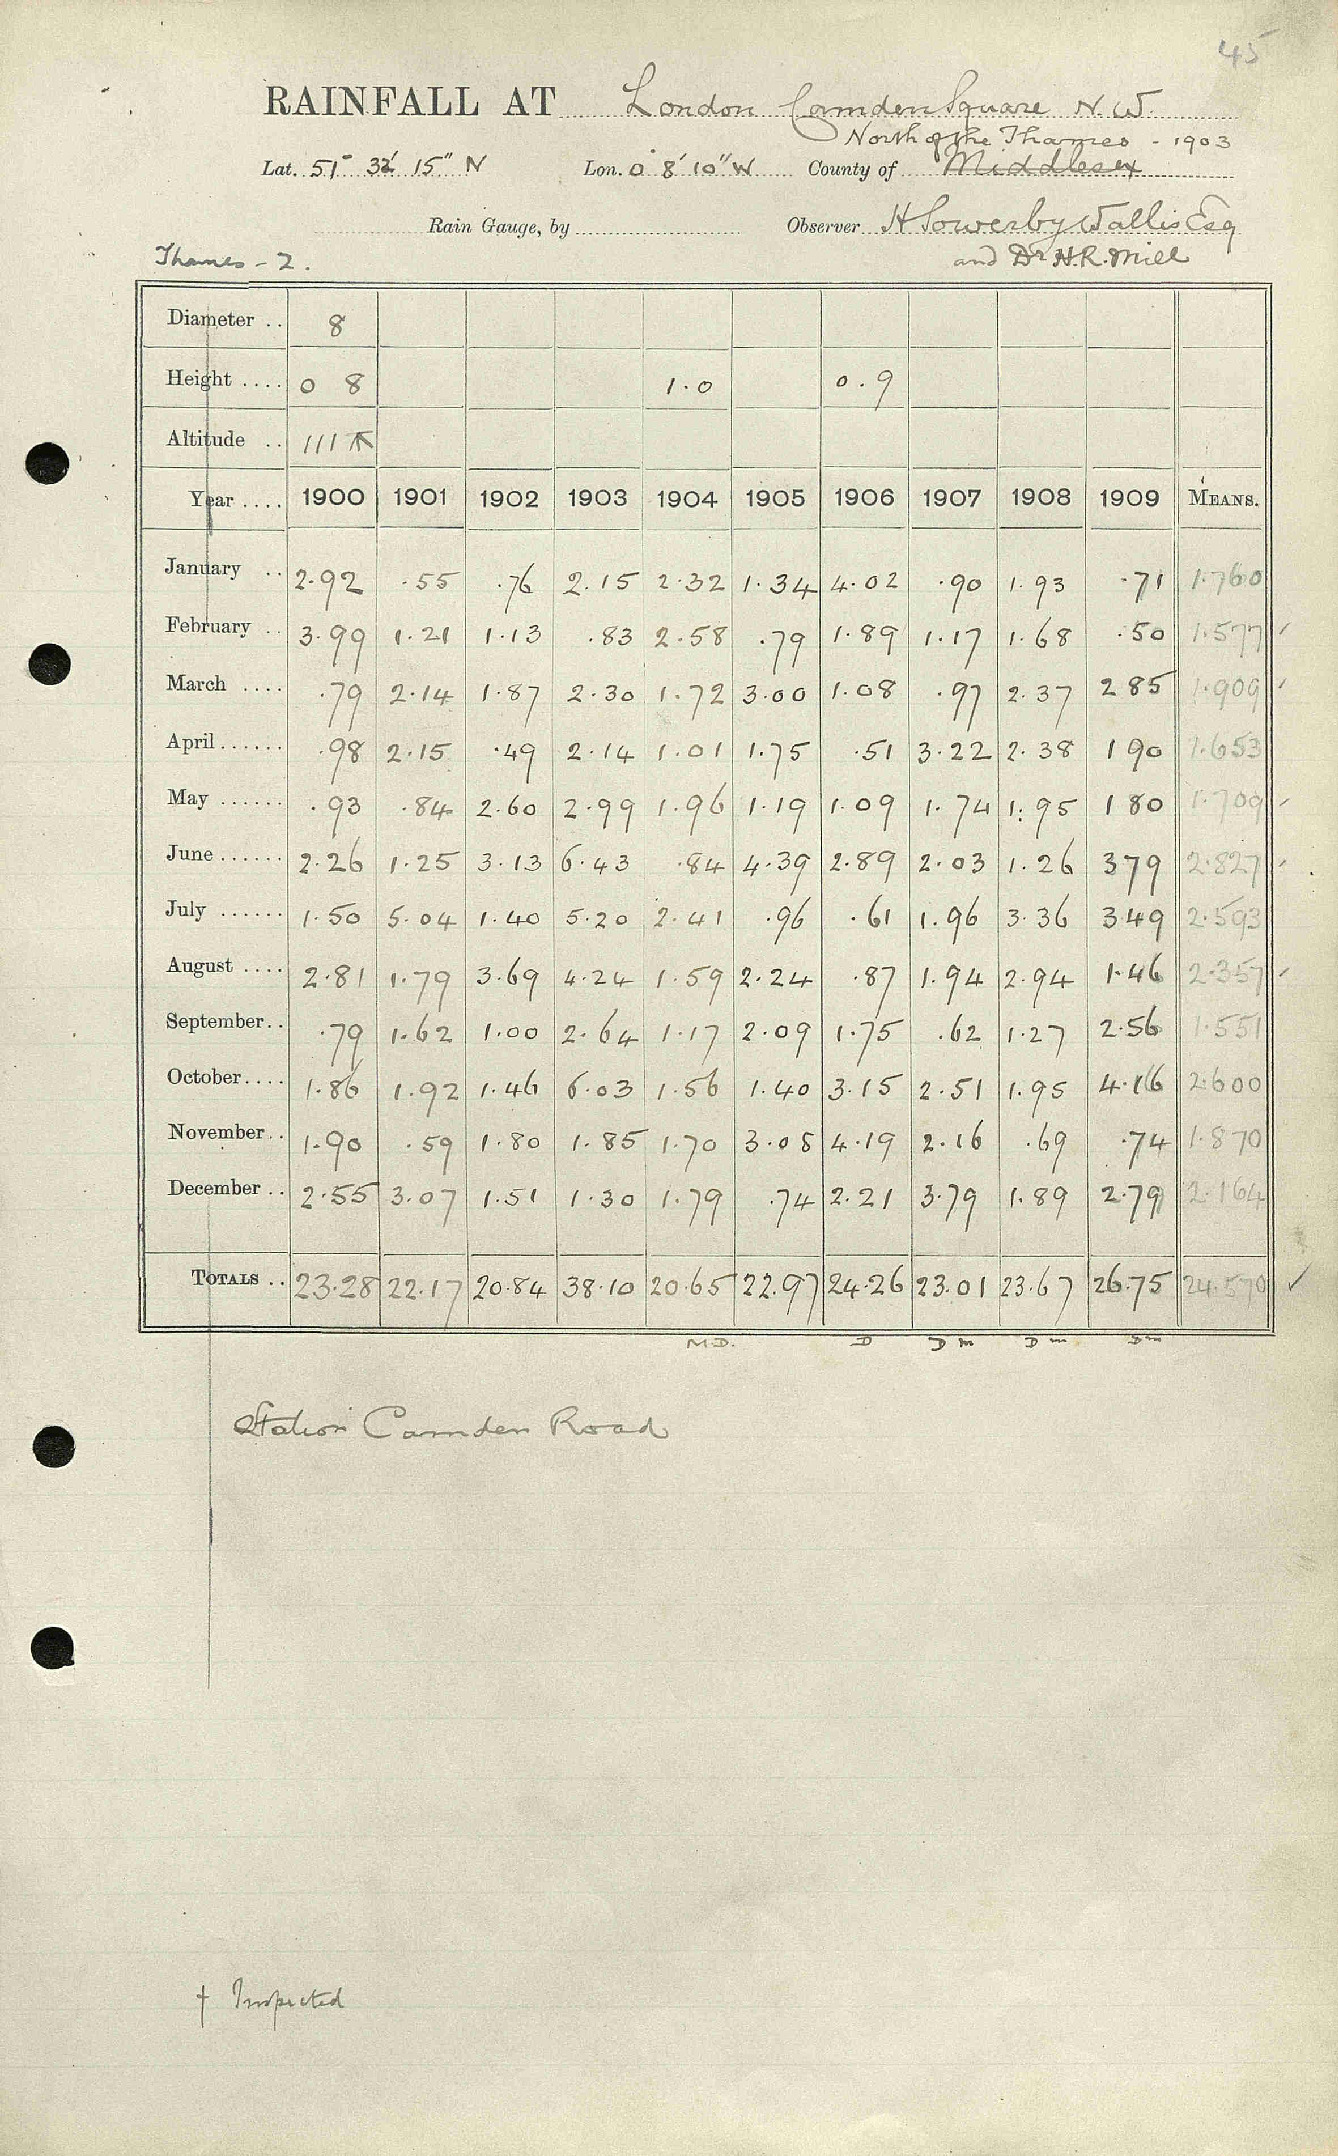 45
RAINFALL AT London Camden Square N.W.
North of the Thames - 1903
Lat. 51° 32' 15" N Lon. 0° 8' 10" W County of Middlesex
Rain Gauge, by Observer H Sowerby Wallis Esq
Thames - 2. and Dr H.R. Mill
Diameter .. 8
Height .... 0 8 1.0 0.9
Altitude .. 111
Year .... 1900 1901 1902 1903 1904 1905 1906 1907 1908 1909 MEANS.
January .. 2.92 .55 .76 2.15 2.32 1.34 4.02 .90 1.93 .71 1.760
February .. 3.99 1.21 1.13 .83 2.58 .79 1.89 1.17 1.68 .50 1.577
March .... .79 2.14 1.87 2.30 1.72 3.00 1.08 .97 2.37 2 85 1.909
April ...... .98 2.15 .49 2.14 1.01 1.75 .51 3.22 2.38 1 90 1.653
May ...... .93 .84 2.60 2.99 1.96 1.19 1.09 1.74 1.95 1 80 1.709
June ...... 2.26 1.25 3.13 6.43 .84 4.39 2.89 2.03 1.26 3 79 2.827
July ...... 1.50 5.04 1.40 5.20 2.41 .96 .61 1.96 3.36 3.49 2.593
August .... 2.81 1.79 3.69 4.24 1.59 2.24 .87 1.94 2.94 1.46 2.357
September .. .79 1.62 1.00 2.64 1.17 2.09 1.75 .62 1.27 2.56 1.551
October .... 1.86 1.92 1.46 6.03 1.56 1.40 3.15 2.51 1.95 4.16 2.600
November .. 1.90 .59 1.80 1.85 1.70 3.08 4.19 2.16 .69 .74 1.870
December .. 2.55 3.07 1.51 1.30 1.79 .74 2.21 3.79 1.89 2.79 2.164
TOTALS .. 23.28 22.17 20.84 38.10 20.65 22.97 24.26 23.01 23.67 26.75 24.570
M.D. D D m D m D m
Station Camden Road
† Inspected